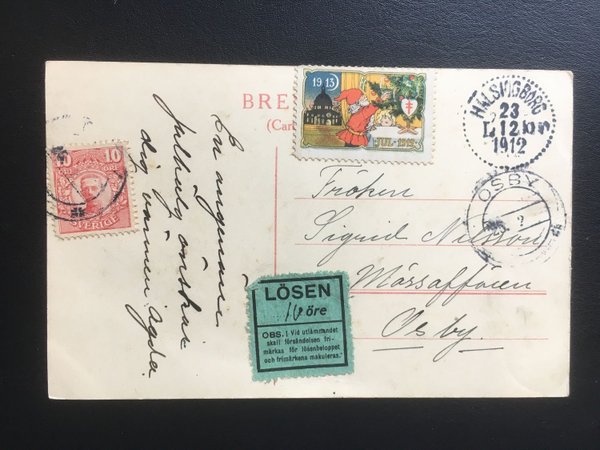 BRE
(Car
1913
JUL-1912
HÄLSINGBORG
23
12
1912
OSBY
10
SVERIGE
En angenäm
julhelg önskar
dig vännen Agda
Fröken
Sigrid Nilsson
Mössaffären
Osby.
LÖSEN
10 öre
OBS.! Vid utlämnandet
skall försändelsen fri-
märkas för lösenbeloppet
och frimärkena makuleras.